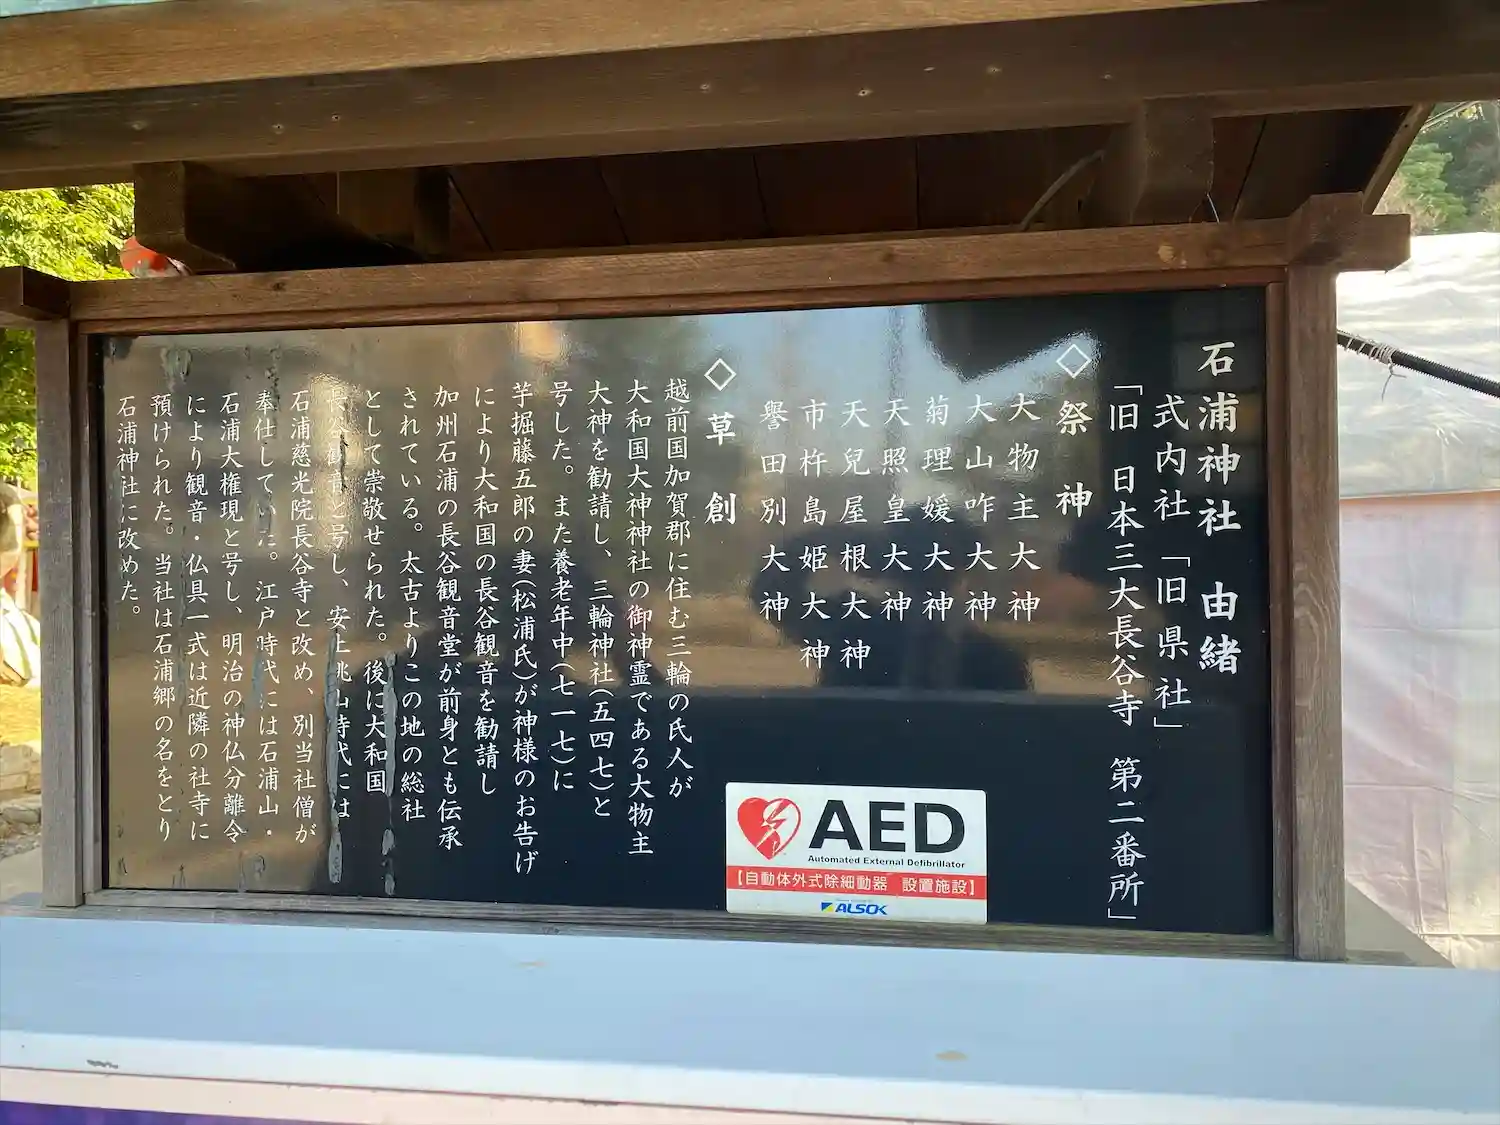 石浦神社　由緒
式内社「旧県社」
「旧　日本三大長谷寺　第二番所」
◇祭神
大物主大神
大山咋大神
菊理媛大神
天照皇大神
天兒屋根大神
市杵島姫大神
譽田別大神
◇草創
越前国加賀郡に住む三輪の氏人が
大和国大神神社の御神霊である大物主
大神を勧請し、三輪神社（五四七）と
号した。また養老年中（七一七）に
芋掘藤五郎の妻（松浦氏）が神様のお告げ
により大和国の長谷観音を勧請し
加州石浦の長谷観音堂が前身とも伝承
されている。太古よりこの地の総社
として崇敬せられた。後に大和国
長谷観音と号し、安土桃山時代には
石浦慈光院長谷寺と改め、別当社僧が
奉仕していた。江戸時代には石浦山・
石浦大権現と号し、明治の神仏分離令
により観音・仏具一式は近隣の社寺に
預けられた。当社は石浦郷の名をとり
石浦神社に改めた。
AED
Automated External Defibrillator
【自動体外式除細動器　設置施設】
ALSOK